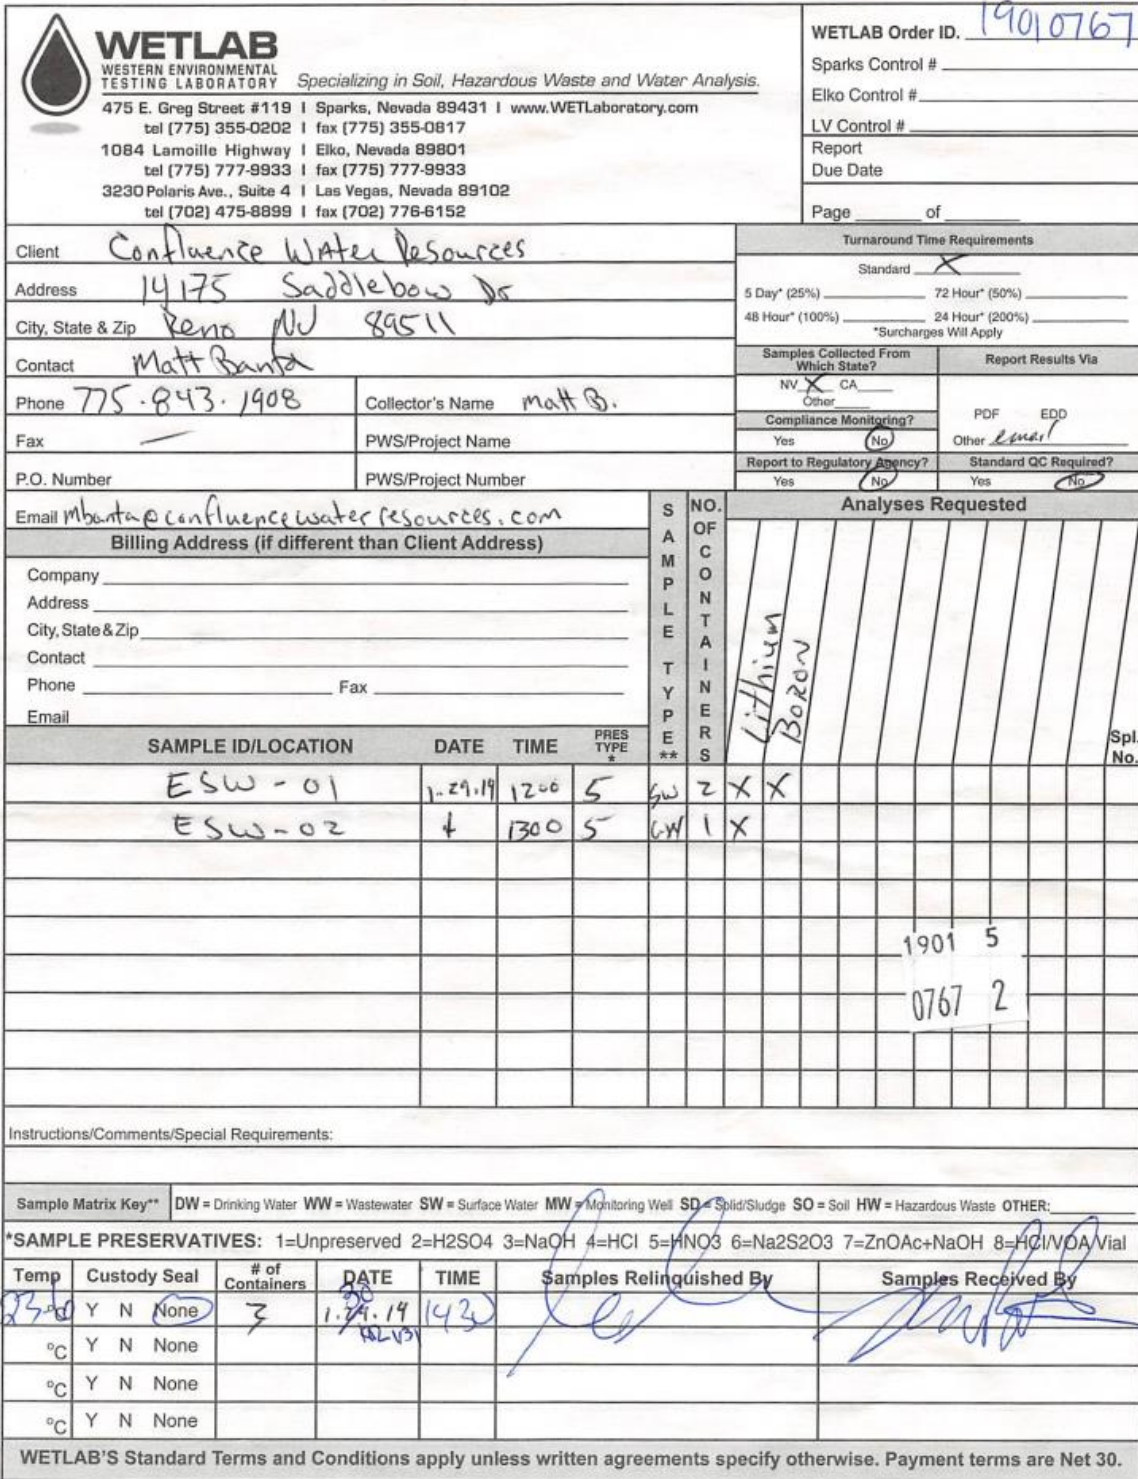 WETLAB
WESTERN ENVIRONMENTAL
TESTING LABORATORY Specializing in Soil, Hazardous Waste and Water Analysis.
475 E. Greg Street #119 | Sparks, Nevada 89431 | www.WETLaboratory.com
tel (775) 355-0202 | fax (775) 355-0817
1084 Lamoille Highway | Elko, Nevada 89801
tel (775) 777-9933 | fax (775) 777-9933
3230 Polaris Ave., Suite 4 | Las Vegas, Nevada 89102
tel (702) 475-8899 | fax (702) 776-6152
WETLAB Order ID. 19010767
Sparks Control #
Elko Control #
LV Control #
Report
Due Date
Page of
Client Confluence Water Resources
Address 14175 Saddlebow Dr
City, State & Zip Reno NV 89511
Contact Matt Banta
Phone 775.843.1908 Collector's Name Matt B.
Fax — PWS/Project Name
P.O. Number PWS/Project Number
Email mbanta@confluencewaterresources.com
Turnaround Time Requirements
Standard X
5 Day* (25%) 72 Hour* (50%)
48 Hour* (100%) 24 Hour* (200%)
*Surcharges Will Apply
Samples Collected From
Which State?
NV X CA
Other
Report Results Via
PDF EDD
Other email
Compliance Monitoring?
Yes No
Report to Regulatory Agency?
Yes No
Standard QC Required?
Yes No
Billing Address (if different than Client Address)
Company
Address
City, State & Zip
Contact
Phone Fax
Email
SAMPLE TYPE **
NO. OF CONTAINERS
Analyses Requested
Lithium
BORON
Spl.
No.
SAMPLE ID/LOCATION DATE TIME PRES TYPE *
ESW-01 1.29.19 1200 5 SW 2 X X
ESW-02 1300 5 GW 1 X
1901 5
0767 2
Instructions/Comments/Special Requirements:
Sample Matrix Key** DW = Drinking Water WW = Wastewater SW = Surface Water MW = Monitoring Well SD = Solid/Sludge SO = Soil HW = Hazardous Waste OTHER:
*SAMPLE PRESERVATIVES: 1=Unpreserved 2=H2SO4 3=NaOH 4=HCl 5=HNO3 6=Na2S2O3 7=ZnOAc+NaOH 8=HCl/VOA Vial
Temp Custody Seal # of Containers DATE TIME Samples Relinquished By Samples Received By
°C Y N None 3 1.30.19 1430
°C Y N None
°C Y N None
°C Y N None
WETLAB'S Standard Terms and Conditions apply unless written agreements specify otherwise. Payment terms are Net 30.